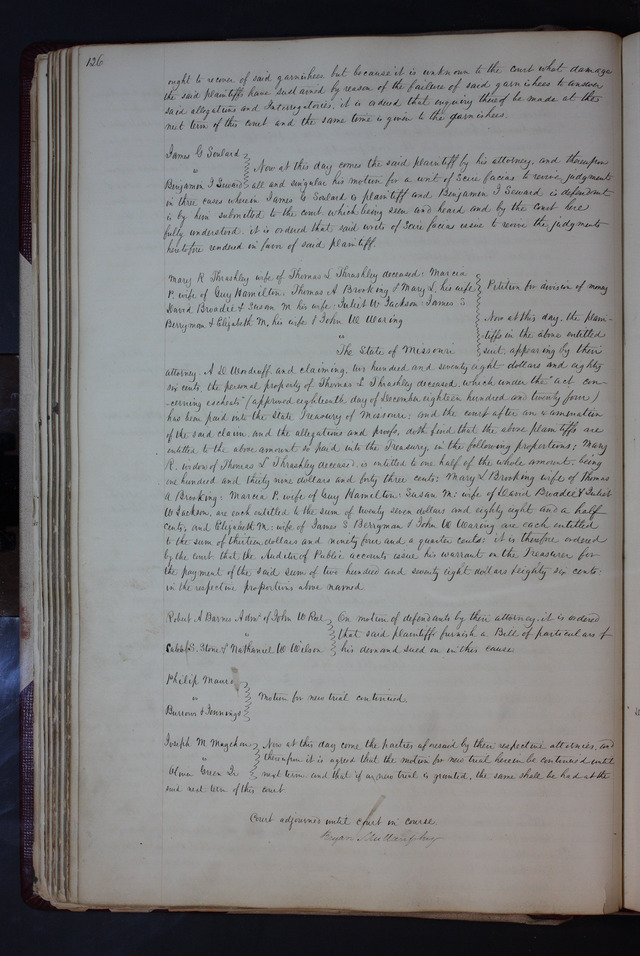 126
ought to recover of said garnishees but because it is unknown to the court what damage
the said plaintiffs have sustained by reason of the failure of said garnishees to answer
said allegations and Interrogatories, it is ordered that enquiry thereof be made at the
next term of this court and the same time is given to the garnishees.
James G Soulard
"
Benjamin I Seward
Now at this day comes the said plaintiff by his attorney, and thereupon
all and singular his motion for a writ of Scire facias to revive judgments
in three cases wherein James G Soulard is plaintiff and Benjamin I Seward is defendant
is by him submitted to the court which being seen and heard and by the Court here
fully understood, it is ordered that said writs of Scire facias issue to revive the judgments
heretofore rendered in favor of said plaintiff.
Mary R Thrashley wife of Thomas L Thrashley deceased; Marcia
P. wife of Guy Hamilton; Thomas A Brooking & Mary L, his wife
David Broadie & Susan M his wife; Juliet W Jackson; James S
Berryman & Elizabeth M, his wife & John W Waring
"
The State of Missouri
Petition for division of money
Now at this day, the plain-
tiffs in the above entitled
suit, appearing by their
attorney A D Woodruff, and claiming, two hundred and seventy eight dollars and eighty
six cents, the personal property of Thomas L Thrashley deceased, which under the "act con-
cerning escheats" (approved eighteenth day of December eighteen hundred and twenty four)
has been paid into the State Treasury of Missouri; and the court after an examination
of the said claim, and the allegations and proofs, doth find that the above plaintiffs are
entitled to the above amount so paid into the Treasury, in the following proportions; Mary
R. widow of Thomas L Thrashley deceased, is entitled to one half of the whole amount; being
one hundred and thirty nine dollars and forty three cents; Mary L Brooking wife of Thomas
A Brooking; Marcia P. wife of Guy Hamilton; Susan M. wife of David Broadie & Juliet
W Jackson, are each entitled to the sum of twenty seven dollars and eighty eight and a half
cents; and Elizabeth M. wife of James S Berryman & John W Waring are each entitled
to the sum of thirteen dollars and ninety four and a quarter cents; it is therefore ordered
by the court that the Auditor of Public accounts issue his warrant on the Treasurer for
the payment of the said sum of two hundred and seventy eight dollars & eighty six cents
in the respective proportions above named
Robert A Barnes Admr of John W Reel
"
S. Stone & Nathaniel W Wilson
On motion of defendants by their attorney, it is ordered
that said plaintiffs furnish a Bill of particulars of
his demand sued in in this cause
Philip Mauro
"
Burrows & Jennings
Motion for new trial continued.
Joseph M Magehan
"
Green Jr
Now at this day come the parties aforesaid by their respective attornies, and
thereupon it is agreed that the motion for new trial herein be continued until
next term and that if a new trial is granted, the same shall be had at the
said next term of this court
Court adjourned until court in course
Bryan Mullanphy